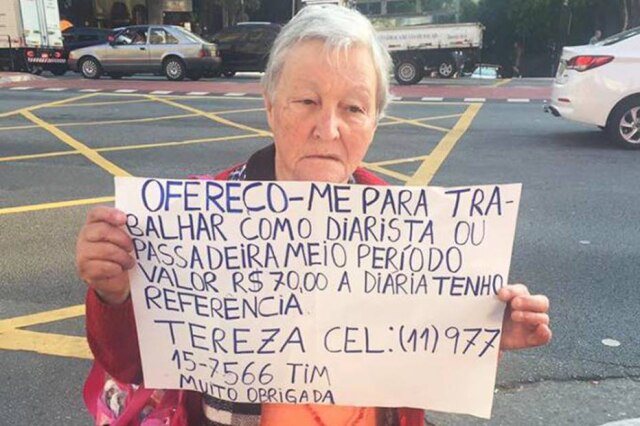 OFEREÇO-ME PARA TRA-
BALHAR COMO DIARISTA OU
PASSADEIRA MEIO PERÍODO
VALOR R$ 70,00 A DIÁRIA TENHO
REFERÊNCIA.
TEREZA CEL:(11)977
15-7566 TIM
MUITO OBRIGADA